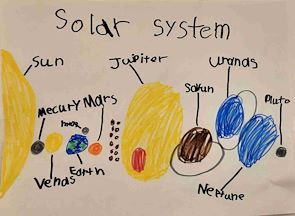 Solar system
Sun
Jupiter
Uranus
Saturn
Mecury
Mars
moon
Pluto
Venus
Earth
Neptune